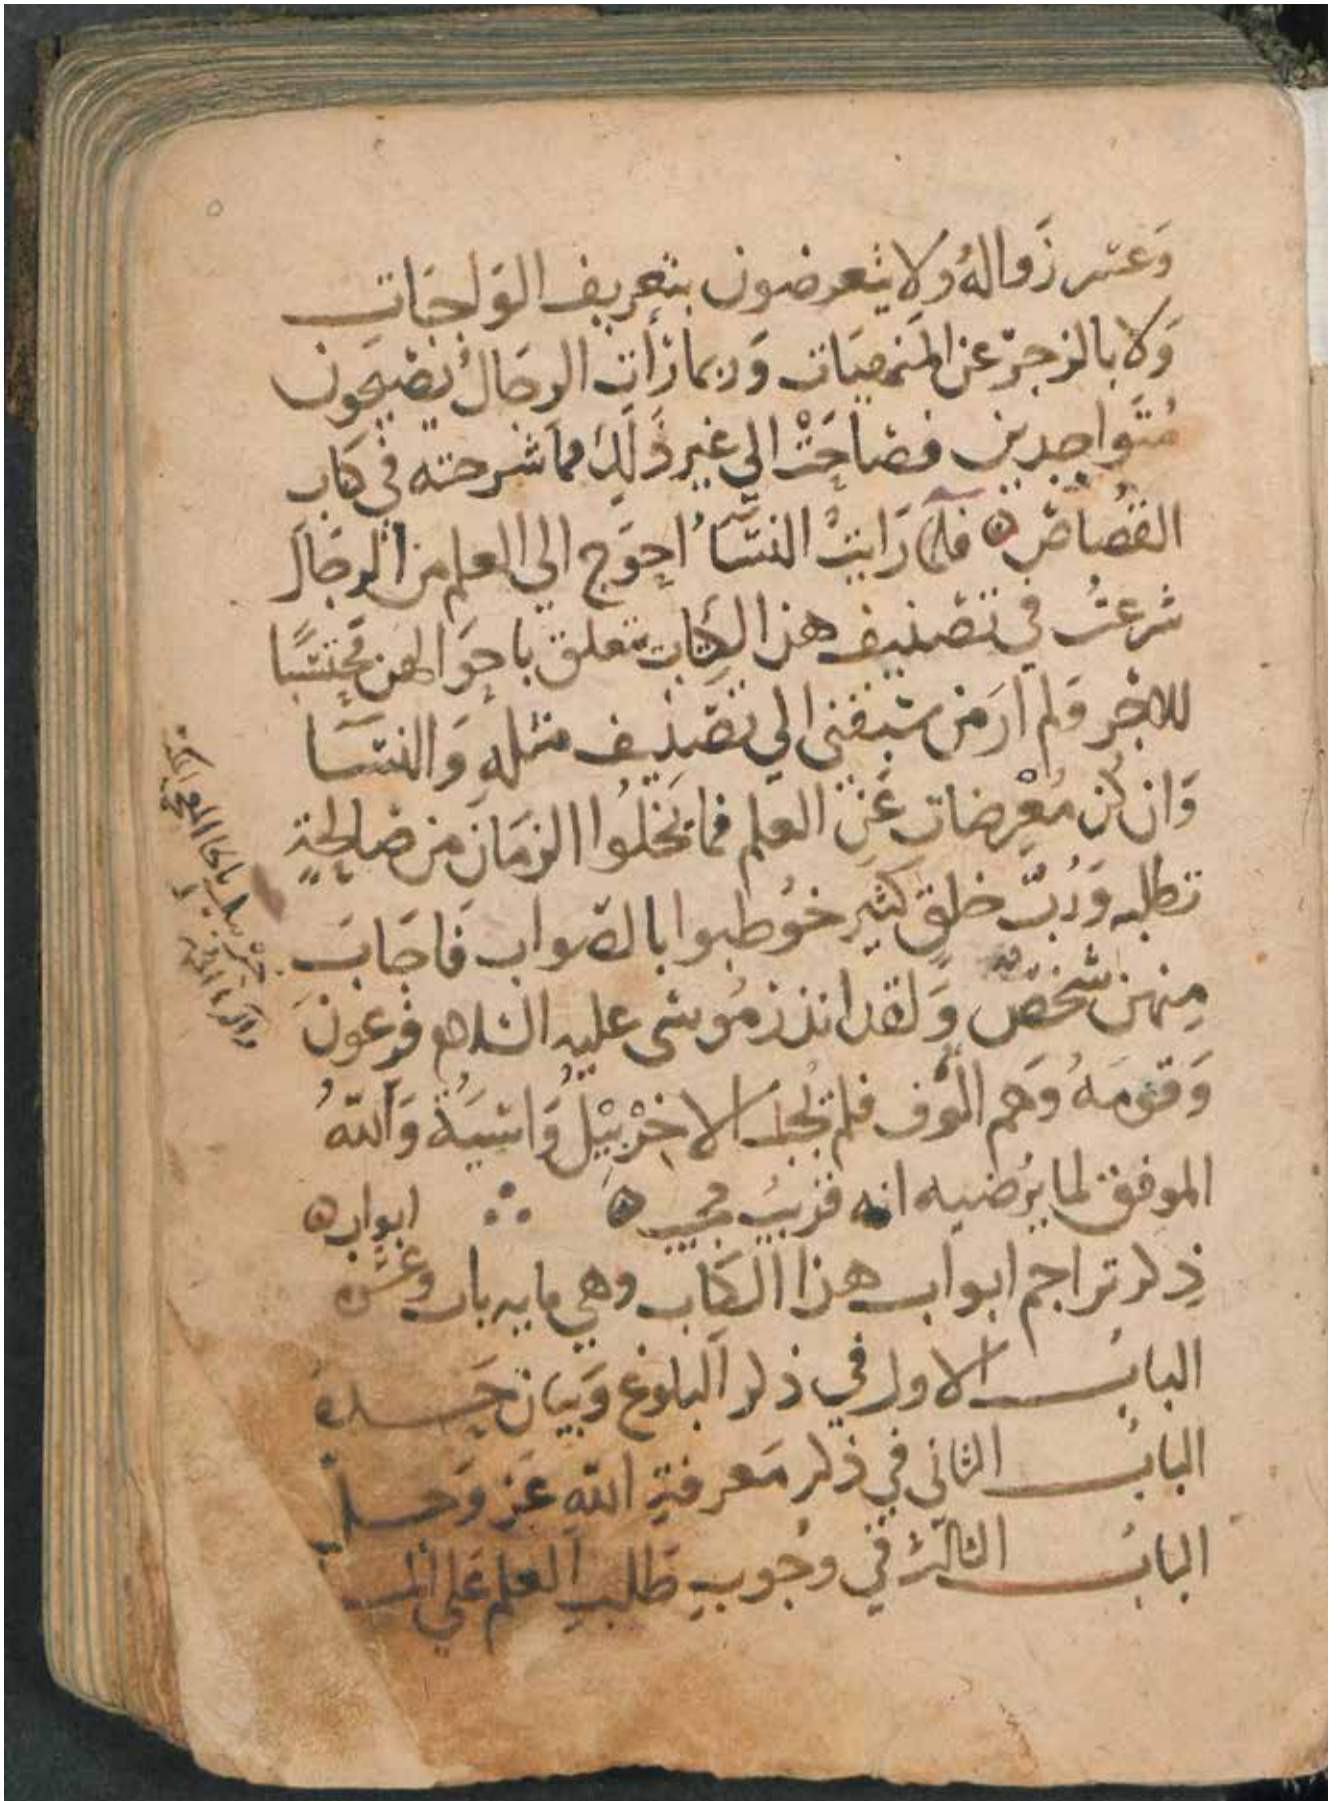 وَعسر زَوالهُ ولا يتعرضون بتعريف الوَاجبَات
وَلا بالزجرْ عن المَنهيَات وَربما رَأت الرجَالُ يَصْيحَون
مُتَواجدين فصَاحَتْ الى غير ذَلِكَ مما شرحته في كتاب
القصَّاص ه فلما رَايتُ النسَّاَ احوَج الى العلم من الرجَال
شرعتُ في تصْنيف هذا الكتاب يتعلق باحوَالهن مُحْتسبًا
للاجْر وَلم ارَ من سَبقني الي تصْنيف مثله وَالنسَا
وَان كُن مُعْرضات عَن العلم فما يَخلُوا الزمَان من صَالحةٍ
تطلبه وَرُبّ خلقٍ كثيرٍ خوُطبوا بالصَواب فاجَابَ
مِنهن شخصٌ وَلقد انذرَ مُوسَى عليه السَلام فرعَونَ
وَقومَهُ وَهم الُوف فلم يُجبْ الا خِرْبيْل وَاسْيَةُ وَاللهُ
الموفق لما يرُضيه انه قريبُ مجيب ه ∴ ابواب ه
ذِكر تراجم ابواب هذا الكتاب وهي مايه باب وعشره
البابُ الاول في ذكر البلوغ وَبيَان حَدهِ
البابُ الثاني في ذكر مَعرفةِ اللهِ عَز وَجل
البابُ الثالث في وجُوبِ طَلبِ العلم عَلى المـ
حزبيل بالحا المعجمه